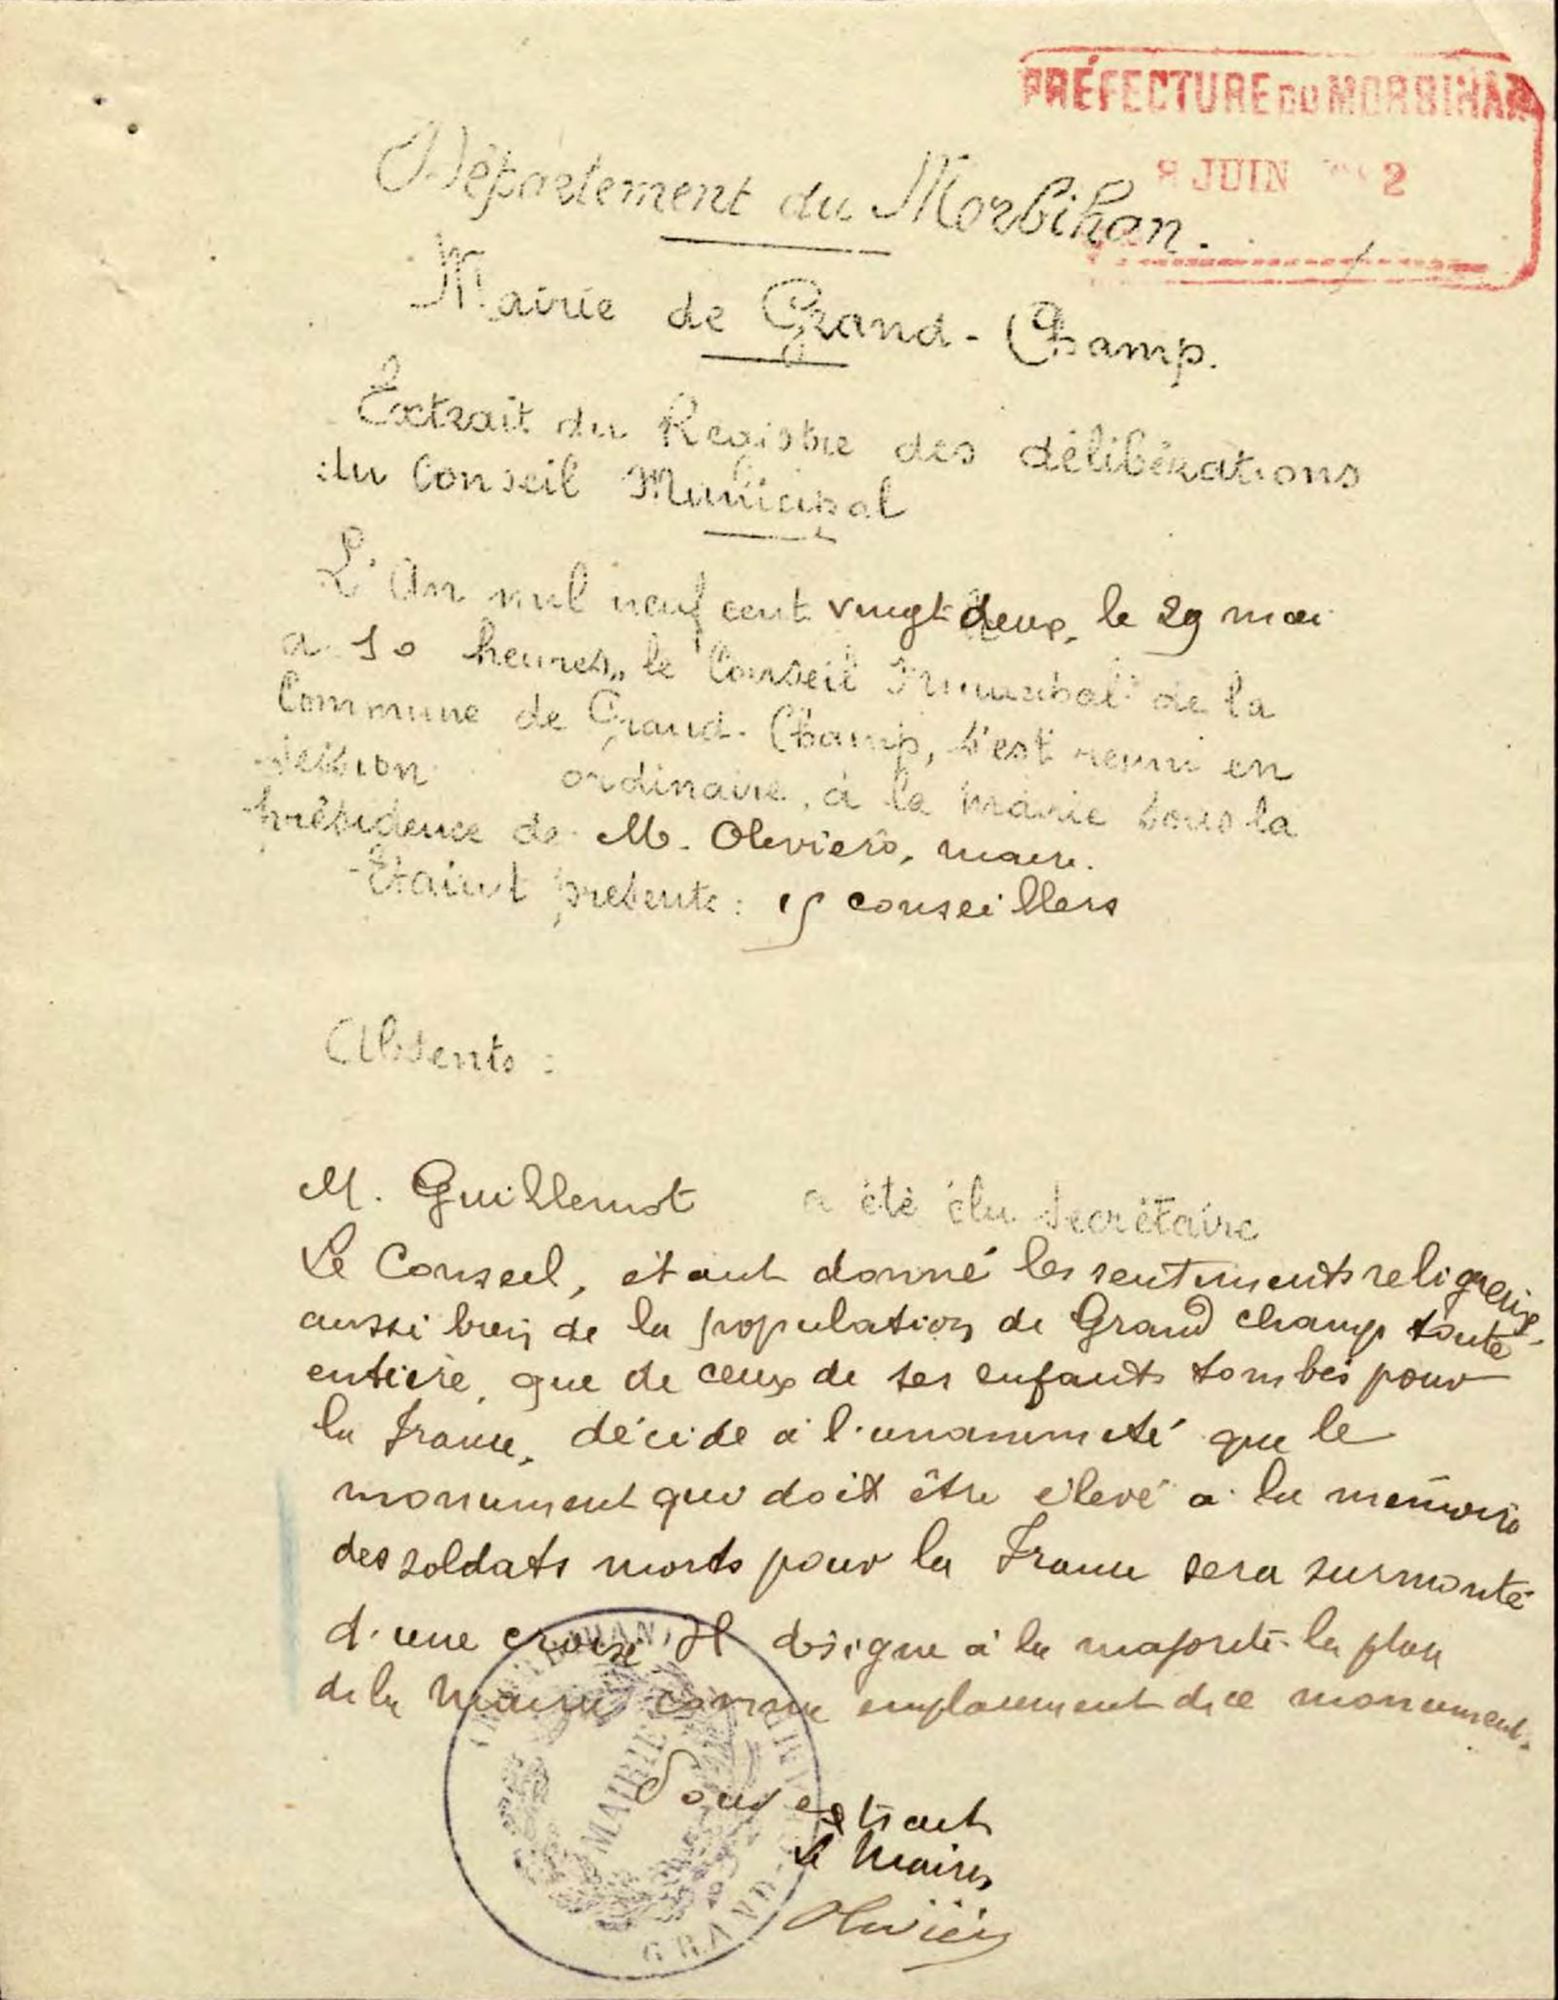 PRÉFECTURE DU MORBIHAN
8 JUIN 2
Département du Morbihan.
Mairie de Grand-Champ.
Extrait du Registre des délibérations
du Conseil Municipal
L'An mil neuf cent vingt deux, le 29 mai
a 10 heures, le Conseil Municipal de la
Commune de Grand-Champ, s'est reuni en
session ordinaire, à la mairie sous la
présidence de M. Oliviero, maire.
Etaient présents : 15 conseillers
Absents :
M. Guillemot a été élu secrétaire
Le Conseil, étant donné les sentiments religieux
aussi bien de la population de Grand champ toute
entière, que de ceux de ses enfants tombés pour
la France, décide à l'unanimité que le
monument qui doit être élevé à la mémoire
des soldats morts pour la France sera surmonté
d'une croix Il désigne à la majorité la place
de la Mairie comme emplacement de ce monument.
Pour extrait
Le Maire,
MAIRIE
GRAND-CHAMP
MORBIHAN